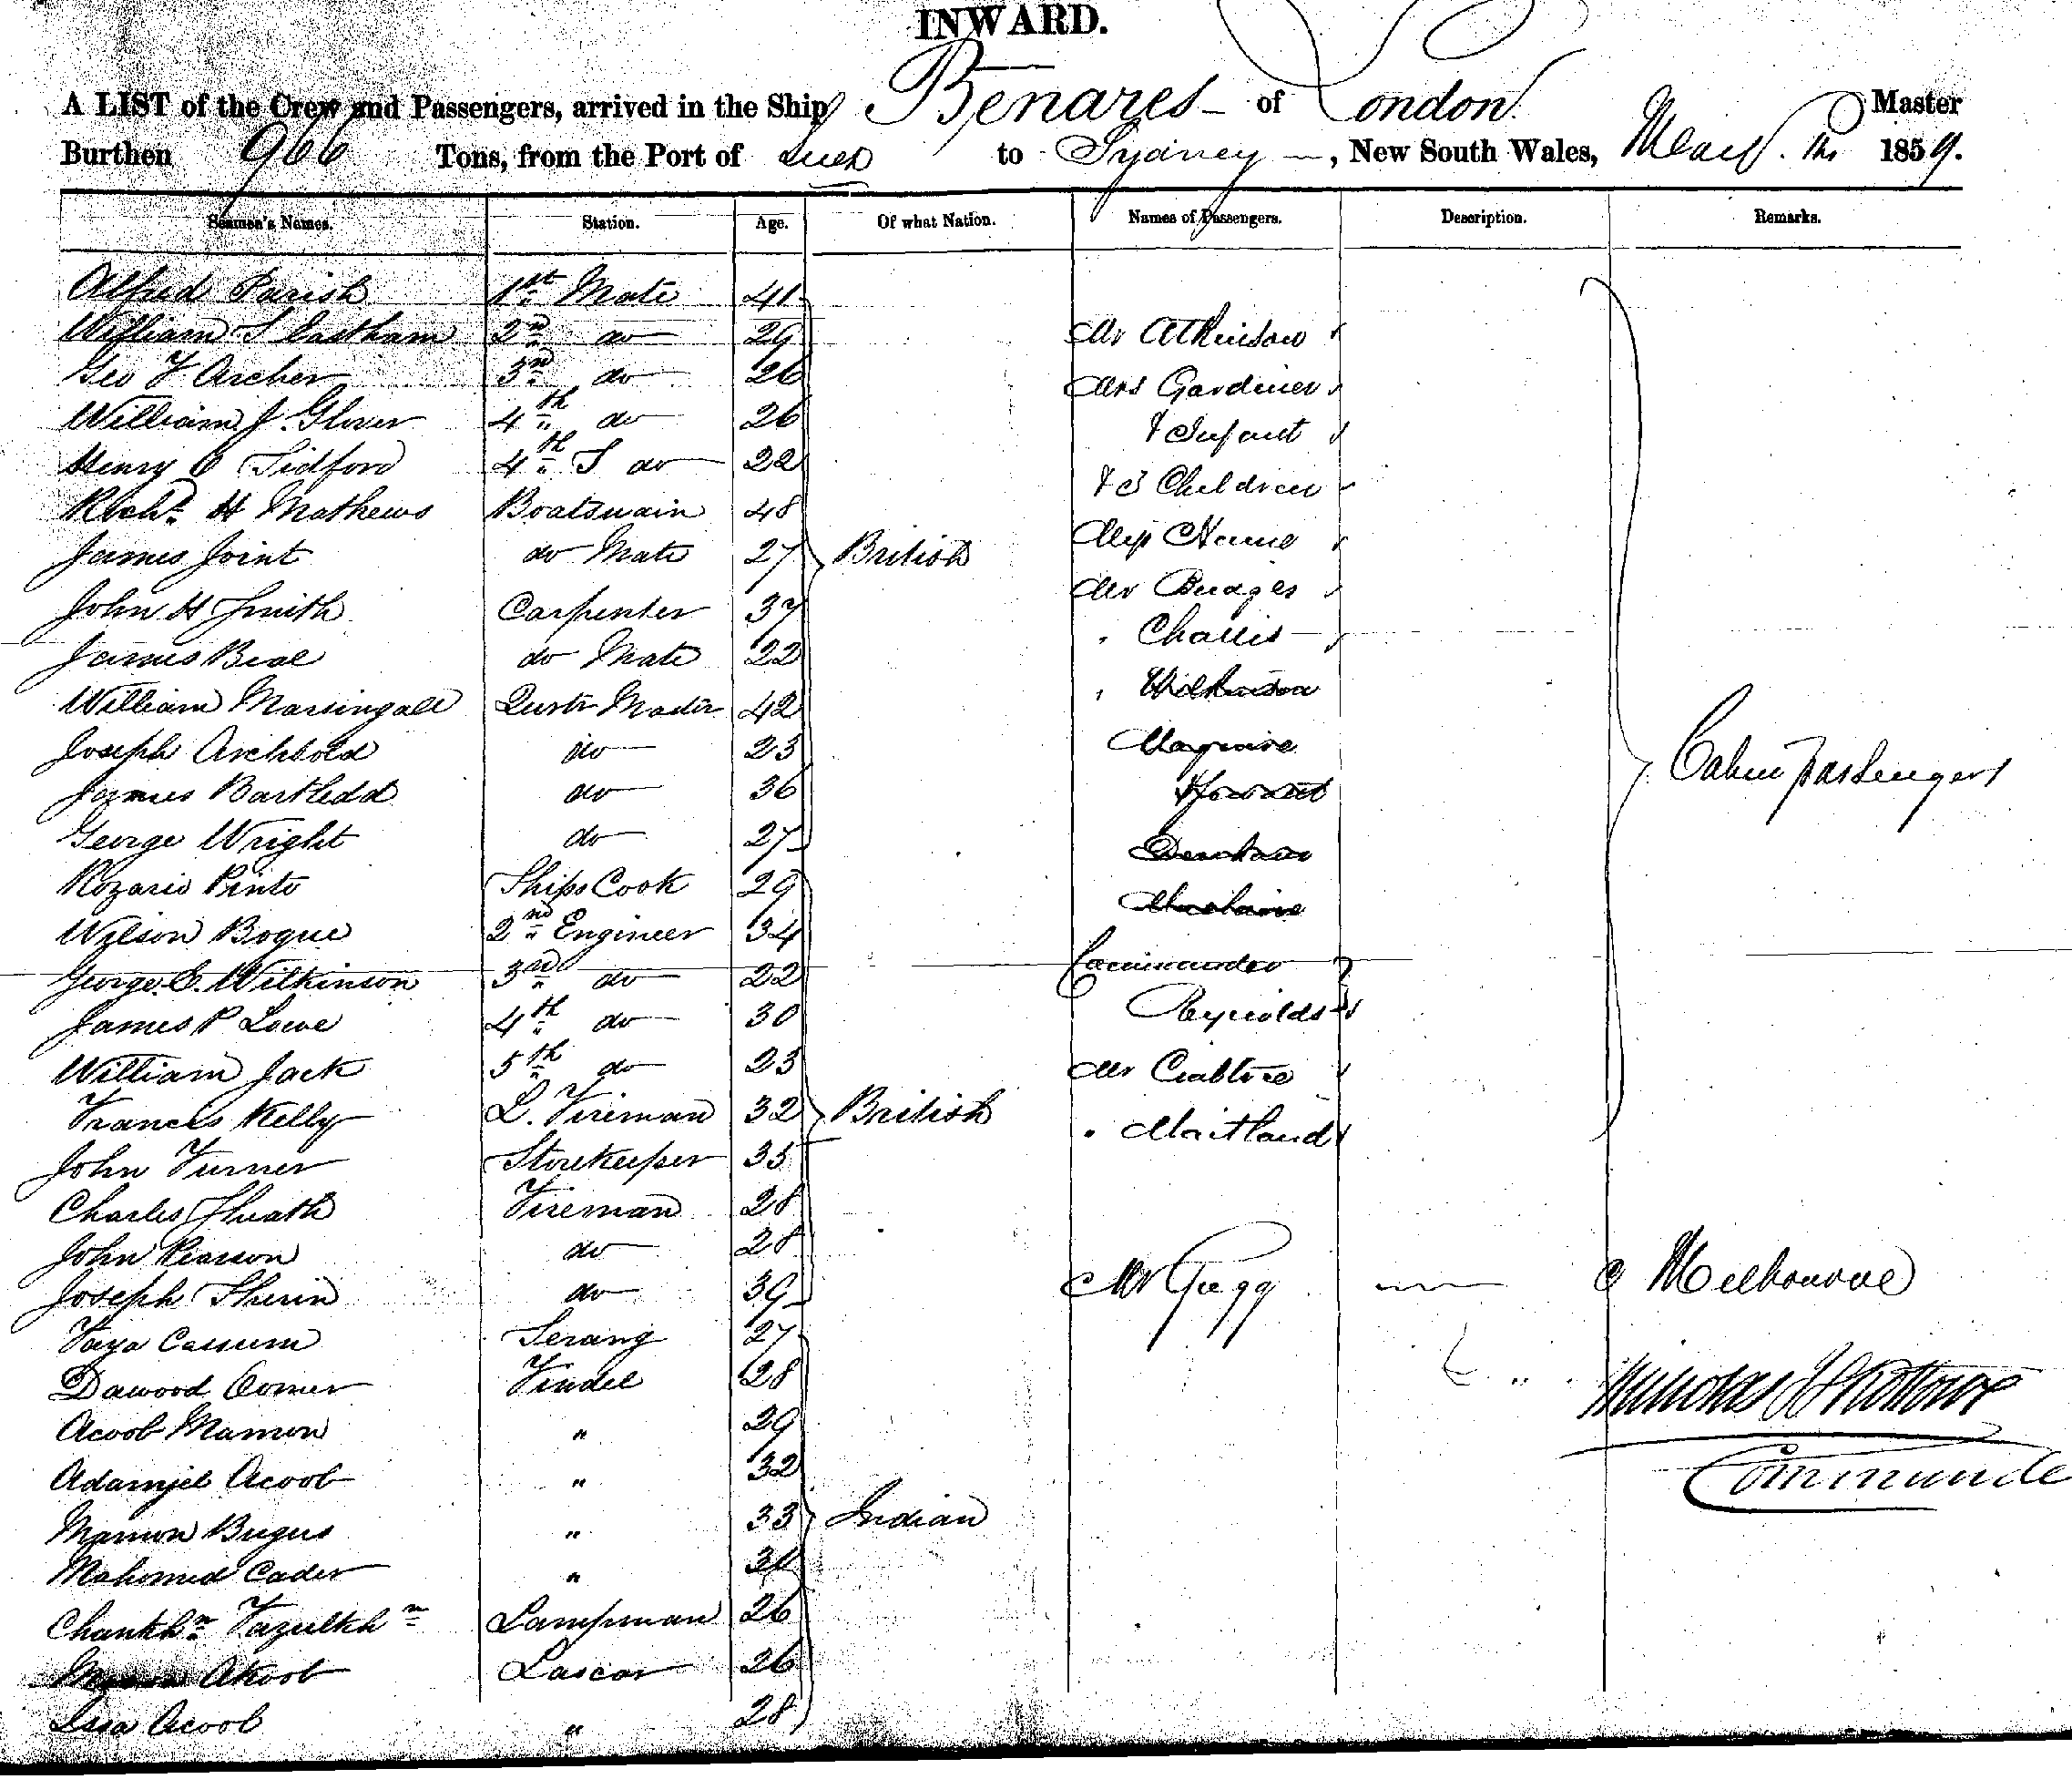 INWARD.
A LIST of the Crew and Passengers, arrived in the Ship Benares of London Master
Burthen 966 Tons, from the Port of Suez to Sydney, New South Wales, 1859.
Seamen's Names. Station. Age. Of what Nation. Names of Passengers. Description. Remarks.
Alfred Parish 1st Mate 41
William S Eastham 2nd do 29 Mr Atkinson
Geo F Archer 3rd do 26 Mrs Gardiner
William J. Glover 4th do 26 & Infant
Henry O Sidford 4th S do 22 & 3 Children
Richd H Mathews Boatswain 48
James Joint do Mate 27 British Miss Hume
John H Smith Carpenter 37 Mr Bridges
James Beal do Mate 22 " Challis
William Marsingall Qustr Mastr 42 " Wilkinson
Joseph Archbold do 23 Maguire
James Bartledd do 36
George Wright do 27 Denham
Rozario Pinto Ships Cook 29
Wilson Bogue 2nd Engineer 34
George C. Wilkinson 3rd do 22 Commander
James P Lowe 4th do 30 Reynolds
William Jack 5th do 23 Mr Crabtree
Francis Kelly L. Fireman 32 British " Maitland
John Turner Storekeeper 35
Charles Sheath Fireman 28
John Pearson do 28
Joseph Sherin do 39 Mr Gregg
Faya Cassum Serang 27
Dawood Oomer Tindel 28
Acoob Mamon " 29
Adamjee Acoob " 32
Mamon Bugus " 33 Indian
Mahomed Cader " 34
Chankhn Fazulkhn Lampman 26
Akoob Lascar 26
Issa Acoob " 28
Cabin passengers
Melbourne
Commande